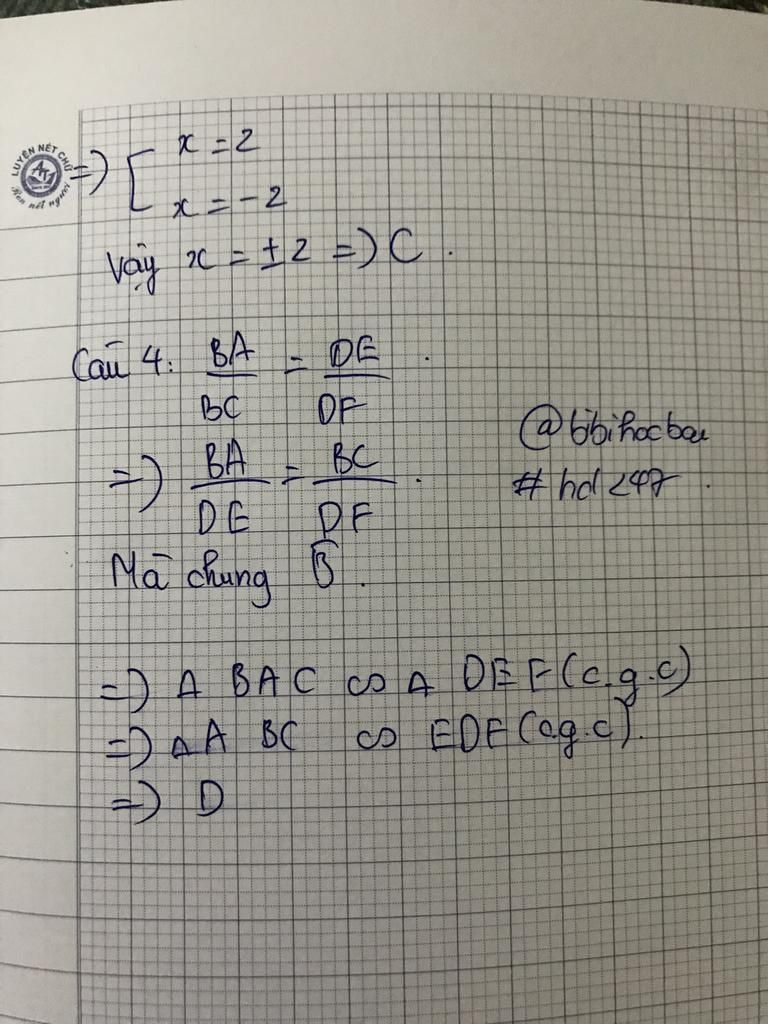 LUYỆN NÉT CHỮ
Rèn nét người
=> [ x = 2
x = -2
Vậy x = ±2 => C.
Câu 4: BA/BC = DE/DF.
=> BA/DE = BC/DF.
@bibihocbai
# hd 247.
Mà chung B̂.
=> Δ BAC ∽ Δ DEF (c.g.c)
=> Δ A BC ∽ EDF (c.g.c).
=> D